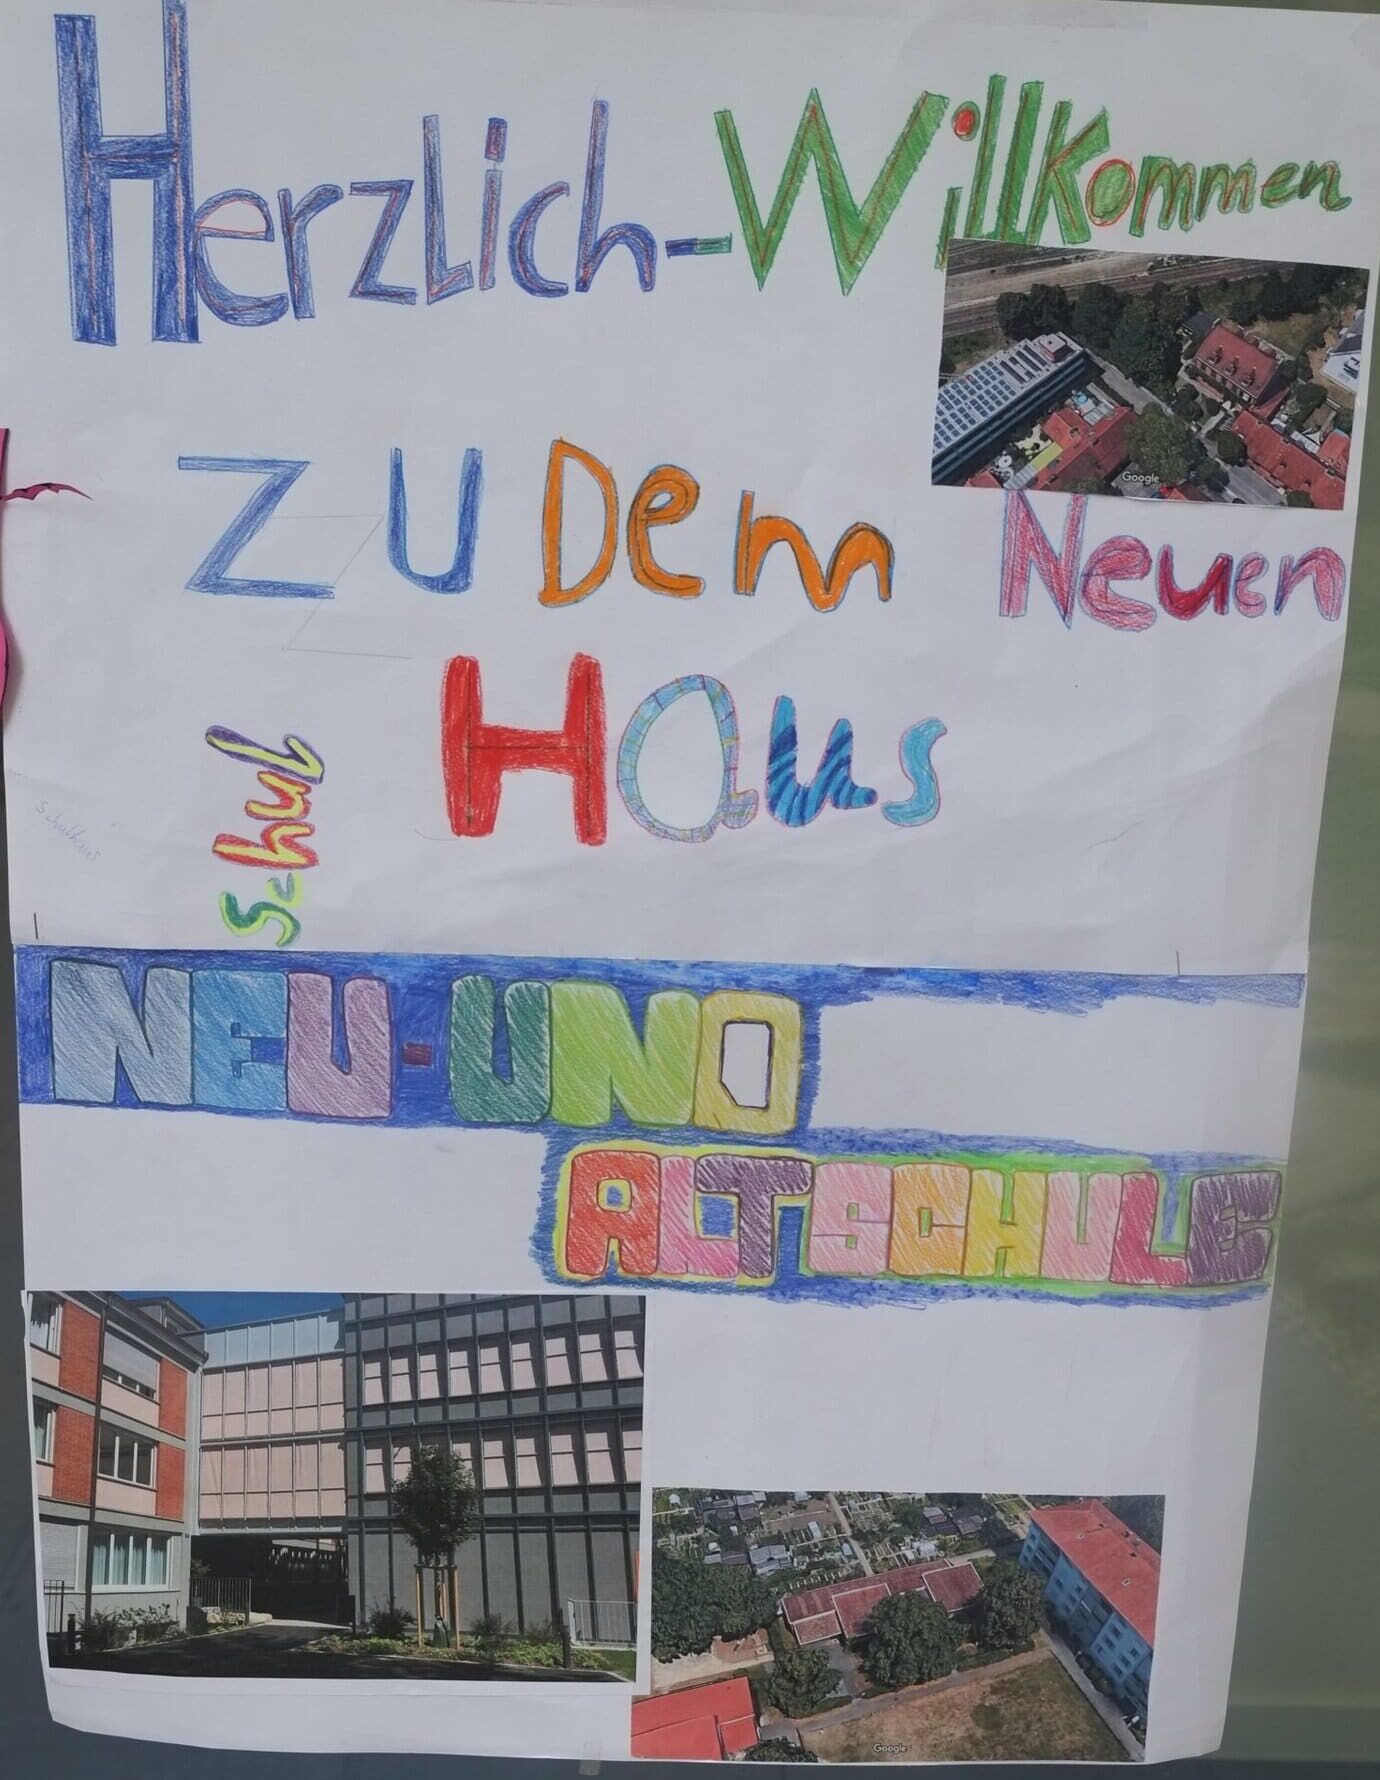 Herzlich-Willkommen
Google
zu Dem Neuen
Schul Haus
Schulhaus
NEU-UND
ALTSCHULE
Google